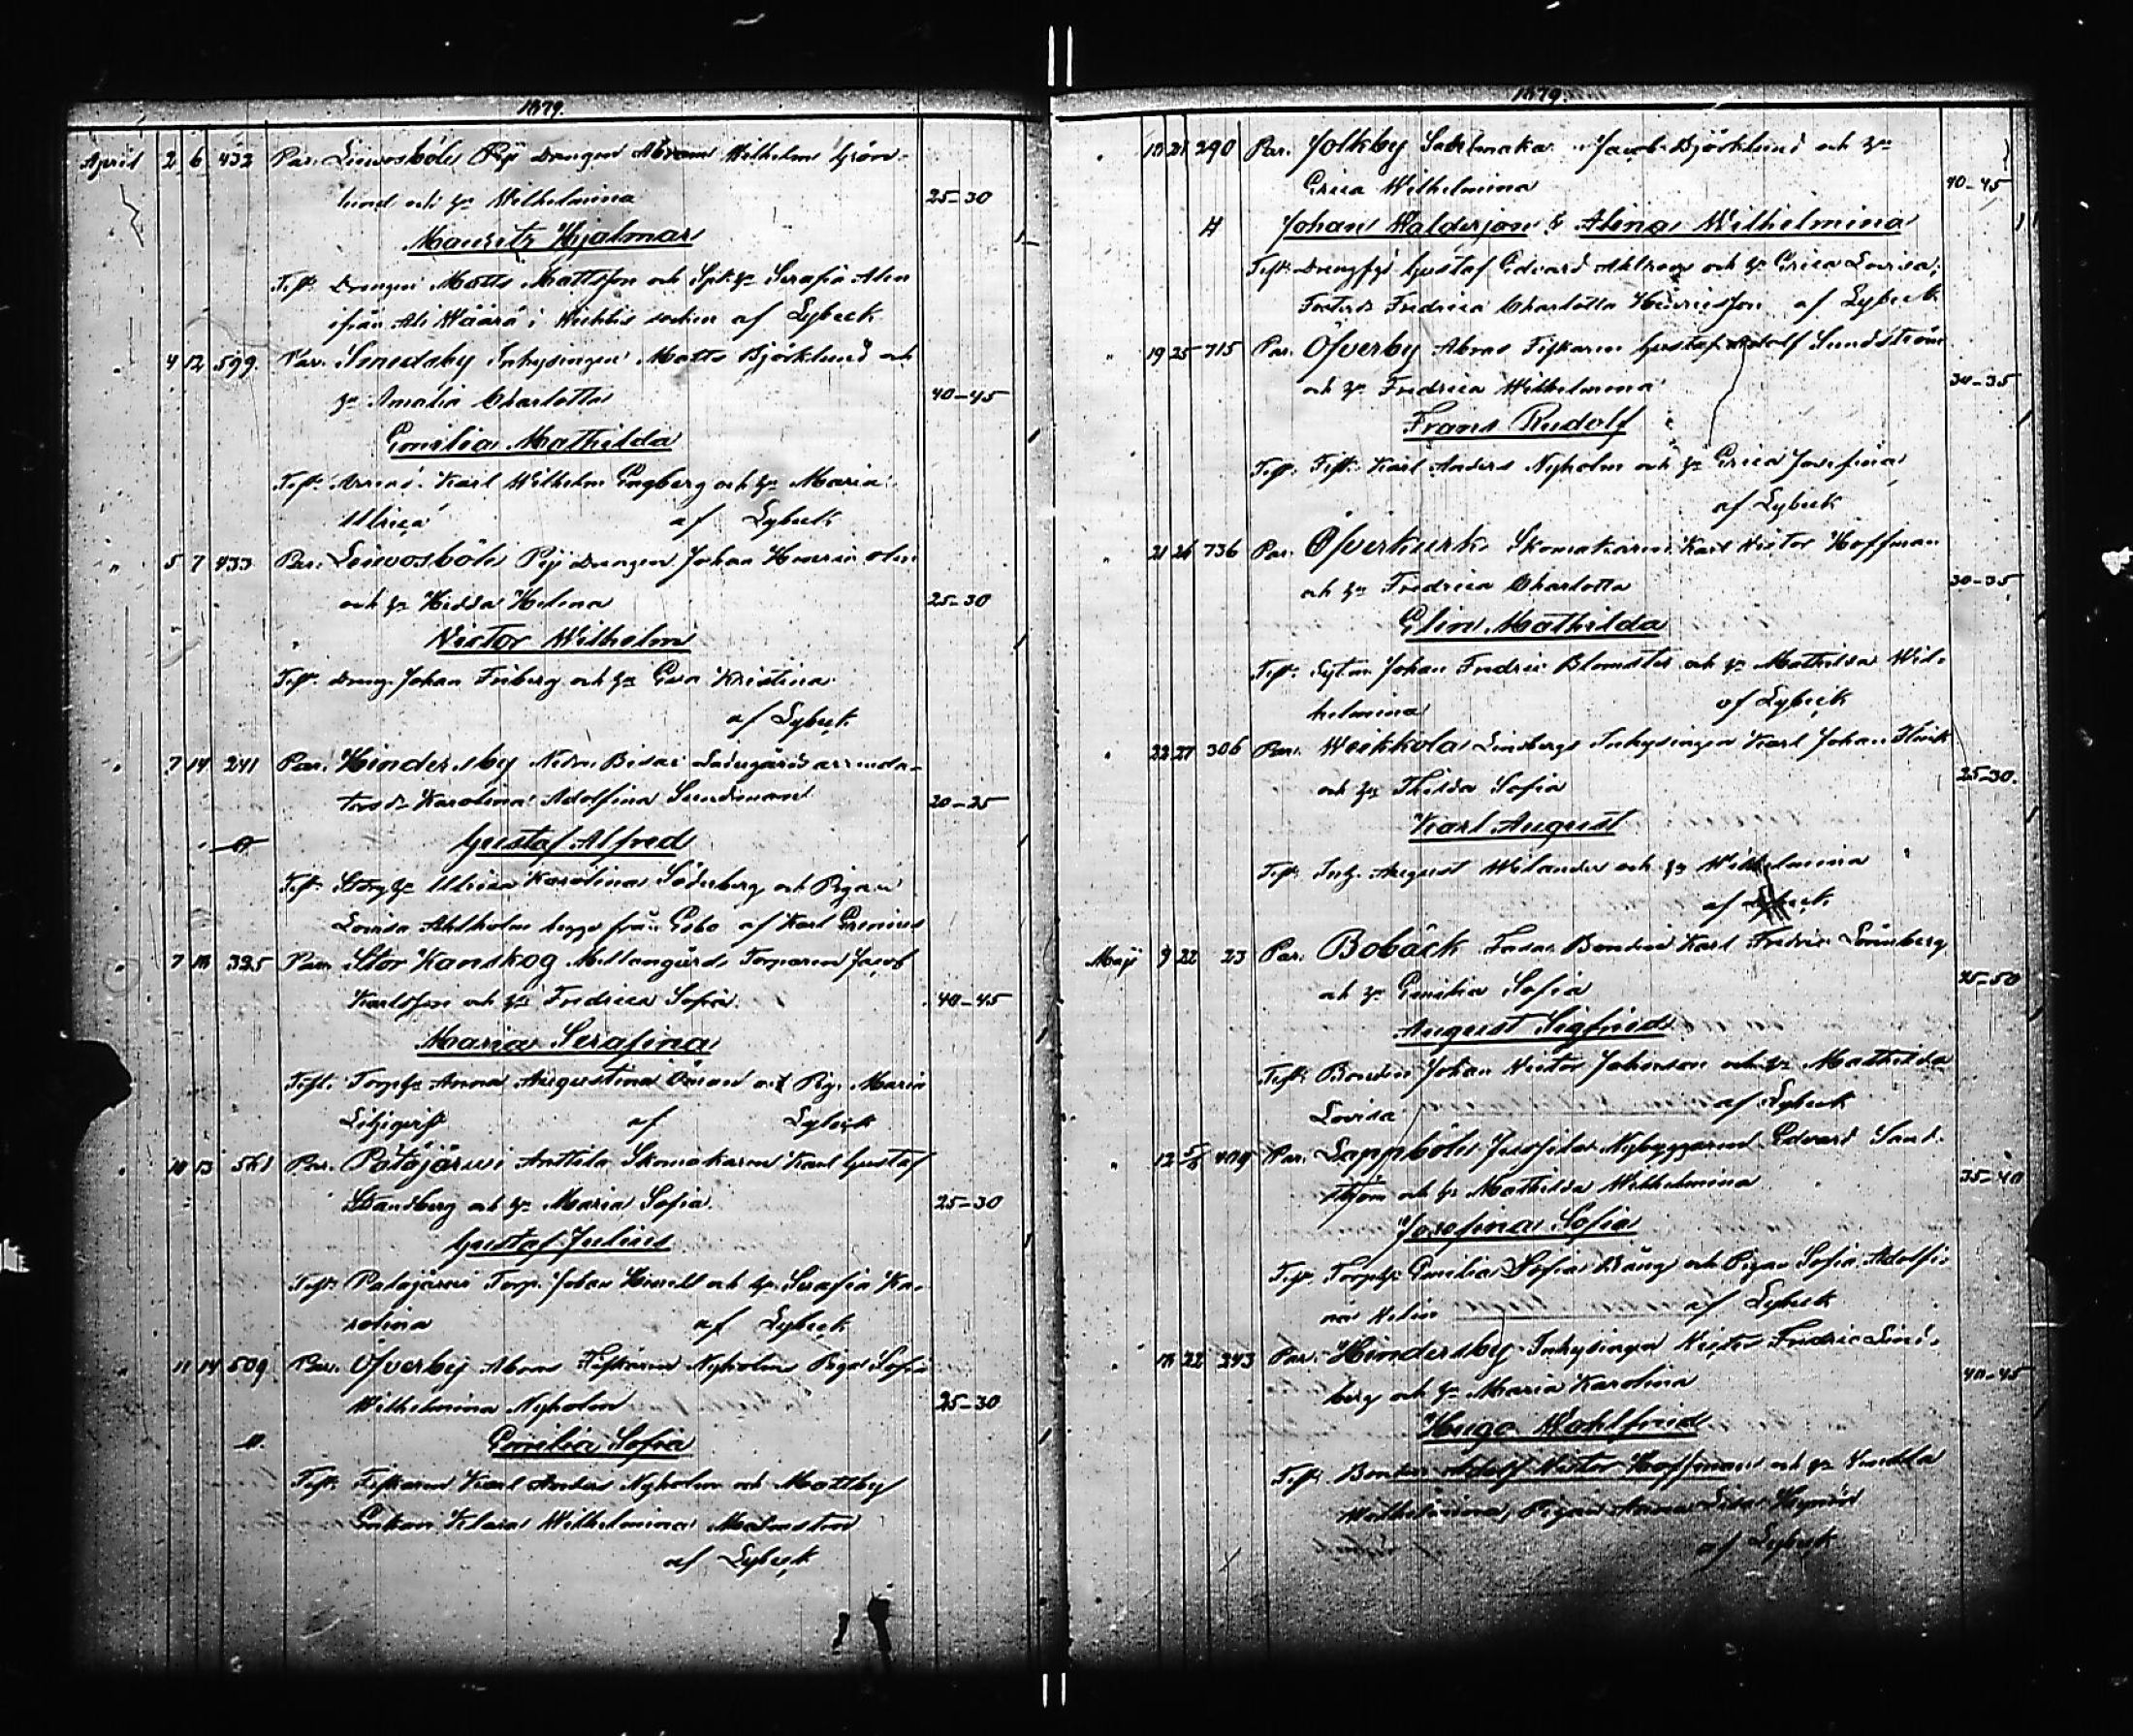 1879.
April 2 6 432 Par. Leivosböle Pijs Drengen Abram Wilhelm Grön-
lund och h:u Wilhelmina 25-30
Mauritz Hjalmar
Test. Drengen Matts Mattsson och h:u Serafia Alen
ifrån i Wichtis socken af Lybeck
4 12 599. Par. Smedsby Inhysingen Matts Björklund och
h:u Amalia Charlotta 40-45
Emilia Mathilda
Test. Karl Wilhelm Engberg och h:u Maria
Ulrica af Lybeck
" 5 7 433 Par. Leivosböle Pijs Drengen Johan Henric Olin
och h:u Hedda Helena 25-30
Victor Wilhelm
Test. Dreng. Johan Friberg och h:u Eva Kristina
af Lybeck
" 7 14 241 Par. Hindersby Nedre Ladugårdsarrenda-
tors d:r Karolina Adolfina Sundman 20-25
Gustaf Alfred
Test. h:u Ulrica Karolina Söderberg och Pigan
Lovisa Ahlholm begge från Esbo af Karl Grenius
" 7 18 325 Par. Stor Kanskog Mellangårds Torparen Jacob
Karlsson och h:u Fredrica Sofia. 40-45
Maria Serafina
Test. Torp.h:u Anna Augustina Öman och Pig. Maria
af Lybeck
" 10 13 561 Par. Patajärvi Anttila Skomakaren Karl Gustaf
Strandberg och h:u Maria Sofia. 25-30
Gustaf Julius
Test. Patajärvi Torp. Johan och h:u Serafia Ka-
rolina af Lybeck
" 11 14 509 Par. Öfverby Abras Fiskaren Nyholms Piga Sofia
Wilhelmina Nyholm 25-30
Emilia Sofia
Test. Fiskaren Karl Anders Nyholm och Mattby
Enkan Klara Wilhelmina Malmsten
af Lybeck
1879.
" 18 21 290 Par. Jolkby Jacob Björklund och h:u
Erica Wilhelmina 40-45
Johan Walderjon & Alina Wilhelmina
Test. Gustaf Edvard Ahlroos och h:u Erica Lovisa,
Fredrica Charlotta Henricsson af Lybeck
" 19 25 715 Par. Öfverby Abras Fiskaren Gustaf Adolf Sundström
och h:u Fredrica Wilhelmina 30-35
Frans Rudolf
Test. Fisk. Karl Anders Nyholm och h:u Erica Josefina
af Lybeck
" 21 26 736 Par. Öfverkurk Skomakaren Karl Victor Hoffman
och h:u Fredrica Charlotta 30-35
Elin Mathilda
Test. Johan Fredric Blomster och h:u Mathilda Wil-
helmina af Lybeck
" 22 27 306 Par. Weikkola Lindbergs Inhysingen Karl Johan
och h:u Thilda Sofia 25-30.
Karl August
Test. Inh. August Welander och h:u Wilhelmina
af Lybeck
Maji 9 22 23 Par. Bobäck Bonden Karl Fredric Lönnberg
och h:u Emilia Sofia 25-50
August Sigfried
Test. Bonden Johan Victor Johnsson och h:u Mathilda
Lovisa af Lybeck
" 12 409 Par. Lappböle Nybyggaren Edvard Sand-
ström och h:u Mathilda Wilhelmina 35-40
Josefina Sofia
Test. Torp.h:u Emilia Sofia och Pigan Sofia Adolfi-
na Helin af Lybeck
" 18 22 243 Par. Hindersby Inhysingen Victor Fredric Lind-
berg och h:u Maria Karolina 40-45
Hugo Wahlfrid
Test. Bonden Adolf Victor Hoffman och h:u Vendla
Wilhelmina, Pigan Anna Lisa
af Lybeck